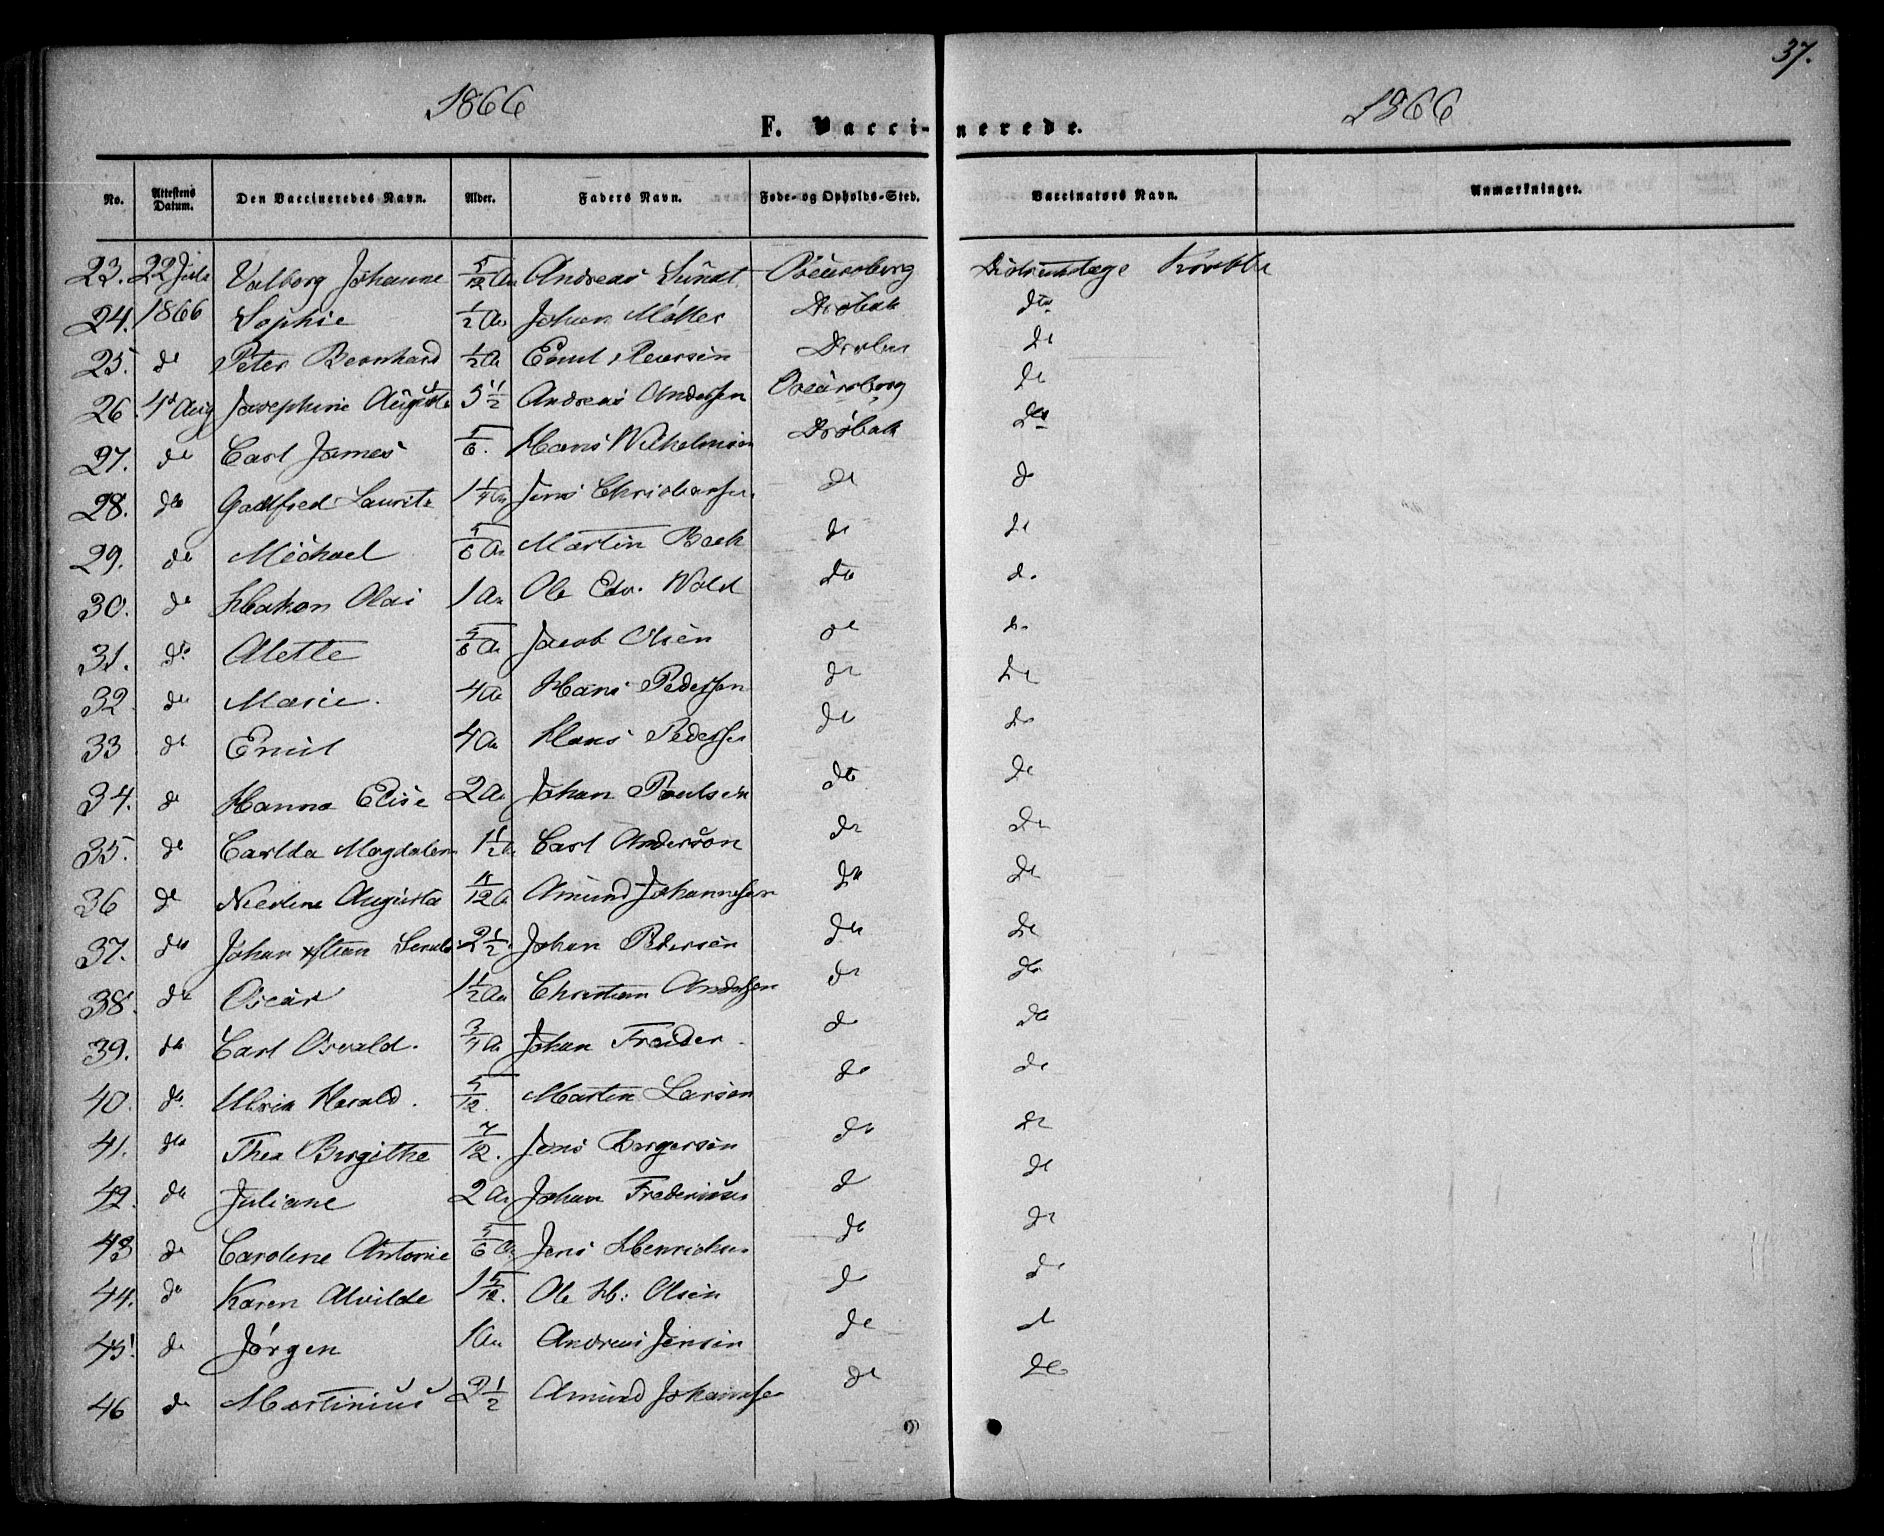 37.
1866 1866
F. Vaccinerede.
No. Attestens Datum. Den Vaccineredes Navn. Alder. Faders Navn. Føde- og Opholds-Sted. Vaccinators Navn. Anmærkninger.
23. 22 Juli Valborg Johanne 5/12 Aar Andreas Sundt Oscarsborg Districtslæge
24. 1866 Sophie 1/2 Aar Johan Møller Drøbak do
25. do Peter Bernhard 1/2 A Emil Drøbak do
26 4d Aug Josephine Auguste 3 1/2 Andreas Anderssen Oscarsborg do
27. do Carl James 5/6. Hans Wilhelmsen Drøbak do
28. do Godtfred Lauritz 1 1/4 Aar Jens Christiansen do do
29. do Michael 5/6 A Martin Bach do do
30. do Hakon Olai 1 Aar Ole Edv. Wold do do
31. do Alette 5/6 A Jacob Olsen do do
32 do Marie. 4 A Hans Pederssen do do
33 do Emil 4 A Hans Pederssen do do
34. do Hanna Elise 2 A Johan Poulsen do do
35. do Carlda Magdalene 1 1/2 A Carl Anderson do do
36 do Nicoline Augusta 4/12 A Amund Johannessen do do
37. do Johan 2 1/2 Johan Pedersen do do
38. do Oscar 1 1/2 Aar Christian Anderssen do do
39. do Carl Osvald. 3/4 A Johan do do
40. do Ulrik Harald. 5/12. Martin Larsen do do
41. do Thea Birgithe 7/12. Jens Birgersen do do
42. do Juliane 2 Aar Johan do do
43 do Caroline Antonie 5/6 A Jens Henrichsen do do
44. do Karen Alvilde 1 5/12. Ole H: Olsen do do
45. do Jørgen 1 Aar Andreas Jensen do do
46 do Martinius 2 1/2 Amund Johannessen do do